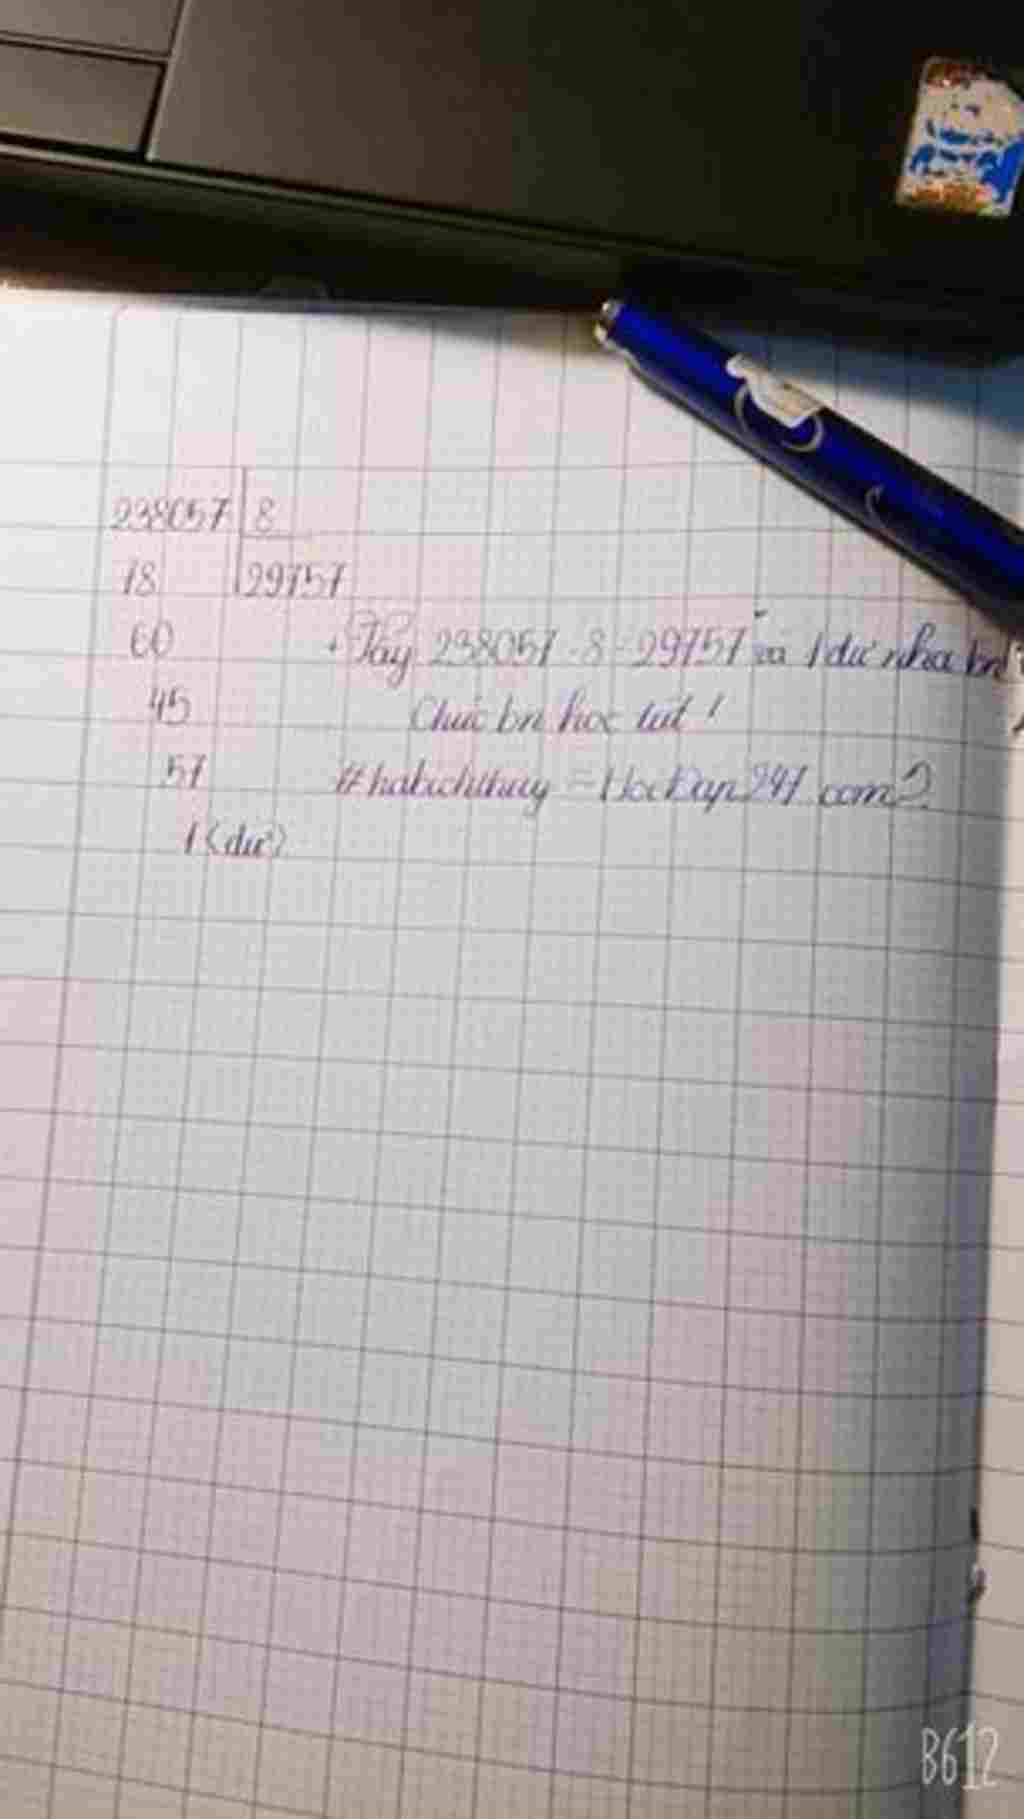 238057 8
18 29757
60
+ Vậy 238057 : 8 = 29757 và 1 dư nha bn!
45
Chúc bn học tốt!
57
#habichthuy = HocDap247.com
1 (dư)
B612